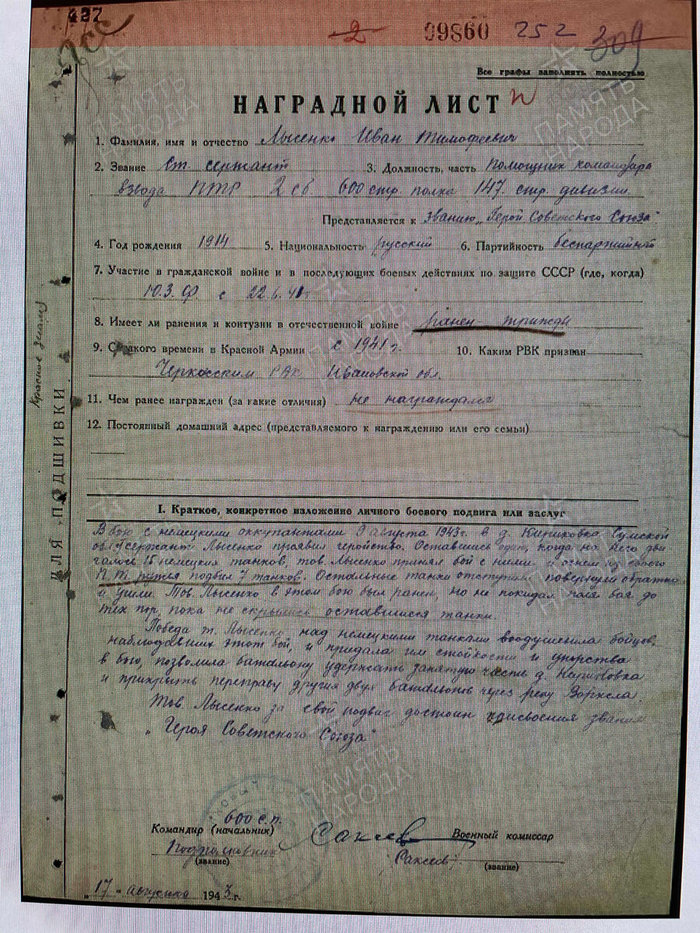 427
2 09860 252 309
Все графы заполнять полностью
НАГРАДНОЙ ЛИСТ
1. Фамилия, имя и отчество Лысенко Иван Тимофеевич
2. Звание Ст. сержант 3. Должность, часть Помощник командира
взвода ПТР 2 сб 600 стр. полка 147 стр. дивизии
Представляется к званию „Герой Советского Союза"
4. Год рождения 1914 5. Национальность русский 6. Партийность беспартийный
7. Участие в гражданской войне и в последующих боевых действиях по защите СССР (где, когда)
Ю.З.Ф. с 22.6.41г
8. Имеет ли ранения и контузии в отечественной войне ранен трижды
9. С какого времени в Красной Армии с 1941 г. 10. Каким РВК призван
РВК Ивановской обл.
11. Чем ранее награжден (за какие отличия) не награждался
12. Постоянный домашний адрес (представляемого к награждению или его семьи)
ДЛЯ ПОДШИВКИ
I. Краткое, конкретное изложение личного боевого подвига или заслуг
В бою с немецкими оккупантами 9 августа 1943 г. в д. Кириковка Сумской
обл. сержант Лысенко проявил геройство. Оставшись один, когда на него дви
галось 15 немецких танков, тов. Лысенко принял бой с ними и огнем из своего
П.Т. ружья подбил 7 танков. Остальные танки отступили, повернули обратно
и ушли. Тов. Лысенко в этом бою был ранен, но не покидал поля боя до
тех пор, пока не скрылись оставшиеся танки.
Победа т. Лысенко, над немецкими танками воодушевила бойцов,
наблюдавших этот бой, и придала им стойкости и упорства
в бою, позволила батальону удержать занятую часть д. Кириковка
и прикрыть переправу других двух батальонов через реку Ворскла.
Тов. Лысенко за свой подвиг достоин присвоения звания
„Героя Советского Союза"
600 с.п.
Командир (начальник) Военный комиссар
Подполковник Сакеев
(звание) (звание)
„17" августа 1943 г.
ПАМЯТЬ НАРОДА